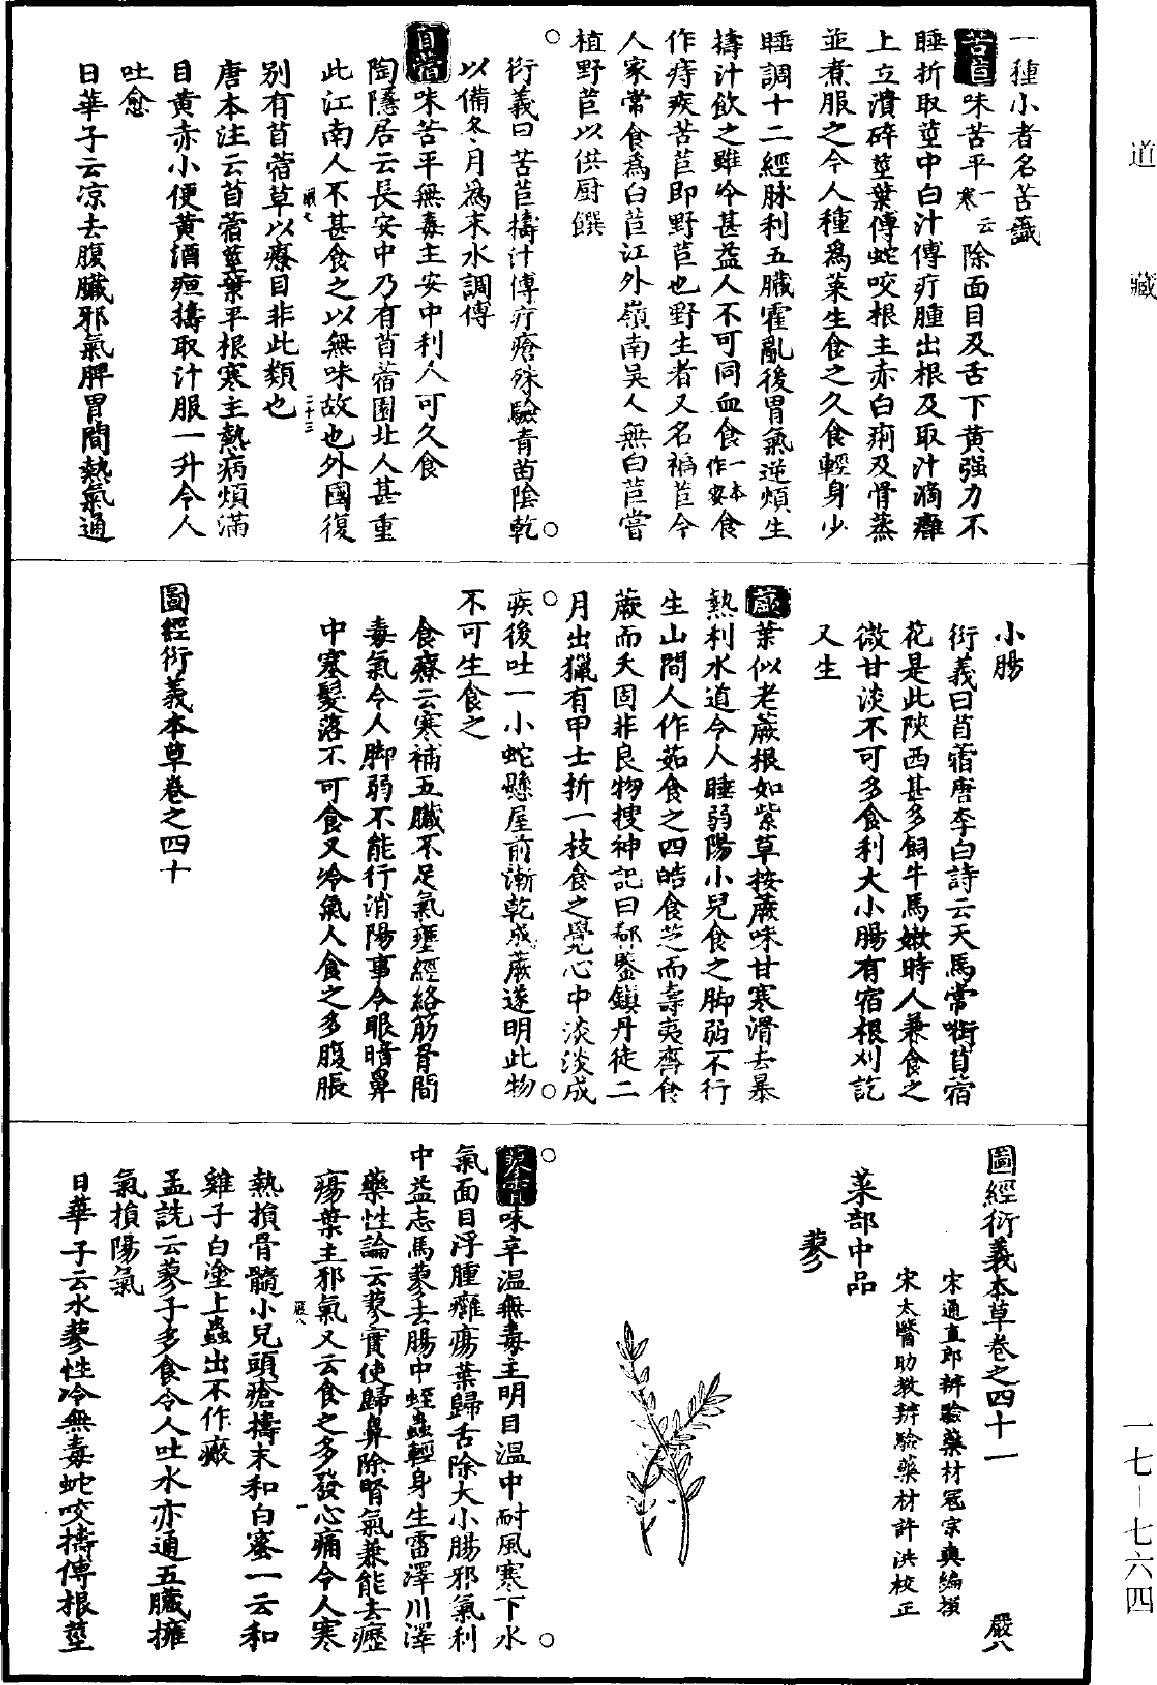 道藏
一種小者名苦蘵
苦苣味苦平一云寒除面目及舌下黃强力不
睡折取莖中白汁傅疔腫出根及取汁滴癰
上立潰碎莖葉傅蛇咬根主赤白痢及骨蒸
並煮服之今人種爲菜生食之久食輕身少
睡調十二經脉利五臟霍亂後胃氣逆煩生
擣汁飲之雖冷甚益人不可同血食一本作蜜食
作痔疾苦苣即野苣也野生者又名褊苣今
人家常食爲白苣江外嶺南吴人無白苣嘗
植野苣以供厨饌
衍義曰苦苣擣汁傅疔瘡殊驗青苗陰乾
以備冬月爲末水調傅
苜蓿味苦平無毒主安中利人可久食
陶隱居云長安中乃有苜蓿園北人甚重
此江南人不甚食之以無味故也外國復
别有苜蓿草以療目非此類也
唐本注云苜蓿莖葉平根寒主熱病煩滿
目黃赤小便黃酒疸擣取汁服一升令人
吐愈
日華子云凉去腹臟邪氣脾胃間熱氣通
小腸
衍義曰苜蓿唐李白詩云天馬常銜苜宿
花是此陝西甚多飼牛馬嫩時人兼食之
微甘淡不可多食利大小腸有宿根刈訖
又生
蕨葉似老蕨根如紫草按蕨味甘寒滑去暴
熱利水道令人睡弱陽小兒食之脚弱不行
生山間人作茹食之四皓食芝而壽夷齊食
蕨而夭固非良物搜神記曰郗鑒鎮丹徒二
月出獵有甲士折一枝食之覺心中淡淡成
疾後吐一小蛇懸屋前漸乾成蕨遂明此物
不可生食之
食療云寒補五臟不足氣壅經絡筋骨間
毒氣令人脚弱不能行消陽事令眼暗鼻
中塞髮落不可食又冷氣人食之多腹脹
圖經衍義本草卷之四十
圖經衍義本草卷之四十一 嚴八
宋通直郎辨驗藥材寇宗奭編撰
宋太醫助教辨驗藥材許洪校正
菜部中品
蓼
蓼實味辛温無毒主明目温中耐風寒下水
氣面目浮腫癰瘍葉歸舌除大小腸邪氣利
中益志馬蓼去腸中蛭蟲輕身生雷澤川澤
藥性論云蓼實使歸鼻除腎氣兼能去癧
瘍葉主邪氣又云食之多發心痛令人寒
熱損骨髓小兒頭瘡擣末和白蜜一云和
雞子白塗上蟲出不作瘢
孟詵云蓼子多食令人吐水亦通五臟擁
氣損陽氣
日華子云水蓼性冷無毒蛇咬擣傅根莖
一七—七六四